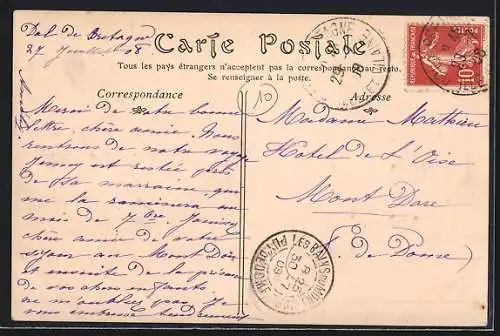 Dol de Bretagne
27 Juillet 08
Carte Postale
Tous les pays étrangers n'acceptent pas la correspondance au recto.
Se renseigner à la poste.
Correspondance
Adresse
10
REPUBLIQUE FRANÇAISE
10
Merci de votre bonne
lettre, chère amie. Nous
rentrons de notre
Jenny est restée près
de sa marraine qui
me la ramènera au
mois de 7bre. Jouissez
chère amie de votre
séjour au Mont Dore
et ensuite de la
de vos chers enfants
ne m'oubliez pas. Je
vous embrasse tendrement
Madame Mathieu
Hotel de L'Oise
Mont Dore
P. de Dome
LES BAINS DU MONT
PUY-DE-DOME
30 7
08